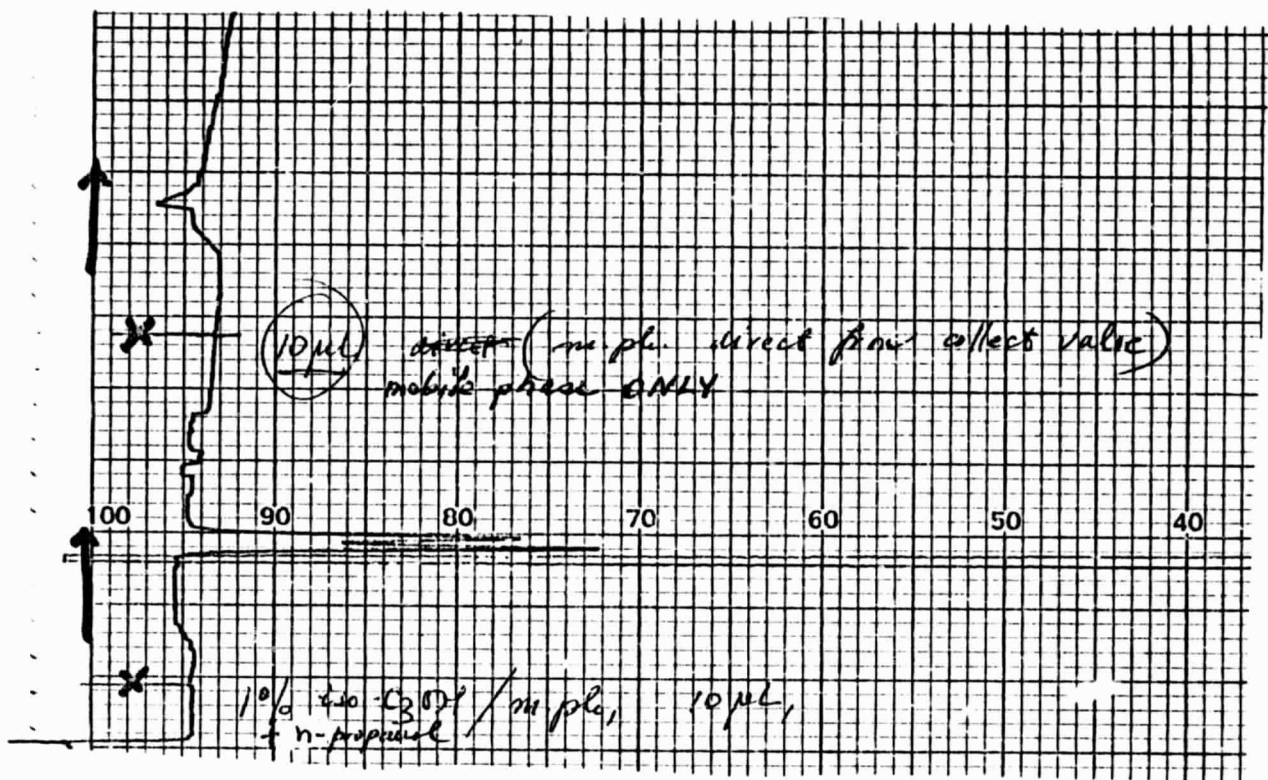 10 µL (m.ph. direct from collect valve)
mobile phase ONLY
100 90 80 70 60 50 40
1% iso-C3OH / m.ph, 10 µL,
+ n-propanol